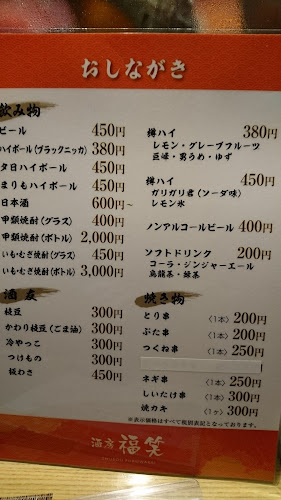 おしながき
飲み物
ビール 450円
ハイボール(ブラックニッカ) 380円
夕日ハイボール 450円
まりもハイボール 450円
日本酒 600円~
甲類焼酎(グラス) 400円
甲類焼酎(ボトル) 2,000円
いも・むぎ焼酎(グラス) 450円
いも・むぎ焼酎(ボトル) 3,000円
樽ハイ 380円
レモン・グレープフルーツ
巨峰・男うめ・ゆず
樽ハイ 450円
ガリガリ君(ソーダ味)
レモン氷
ノンアルコールビール 400円
ソフトドリンク 200円
コーラ・ジンジャーエール
烏龍茶・緑茶
酒友
枝豆 300円
かわり枝豆(ごま油) 300円
冷やっこ 300円
つけもの 300円
板わさ 450円
焼き物
とり串 〈1本〉 200円
ぶた串 〈1本〉 200円
つくね串 〈1本〉 250円
ネギ串 〈1本〉 250円
しいたけ串 〈1本〉 300円
焼カキ 〈1ヶ〉 300円
※表示価格はすべて税別表記となっております。
酒房 福笑